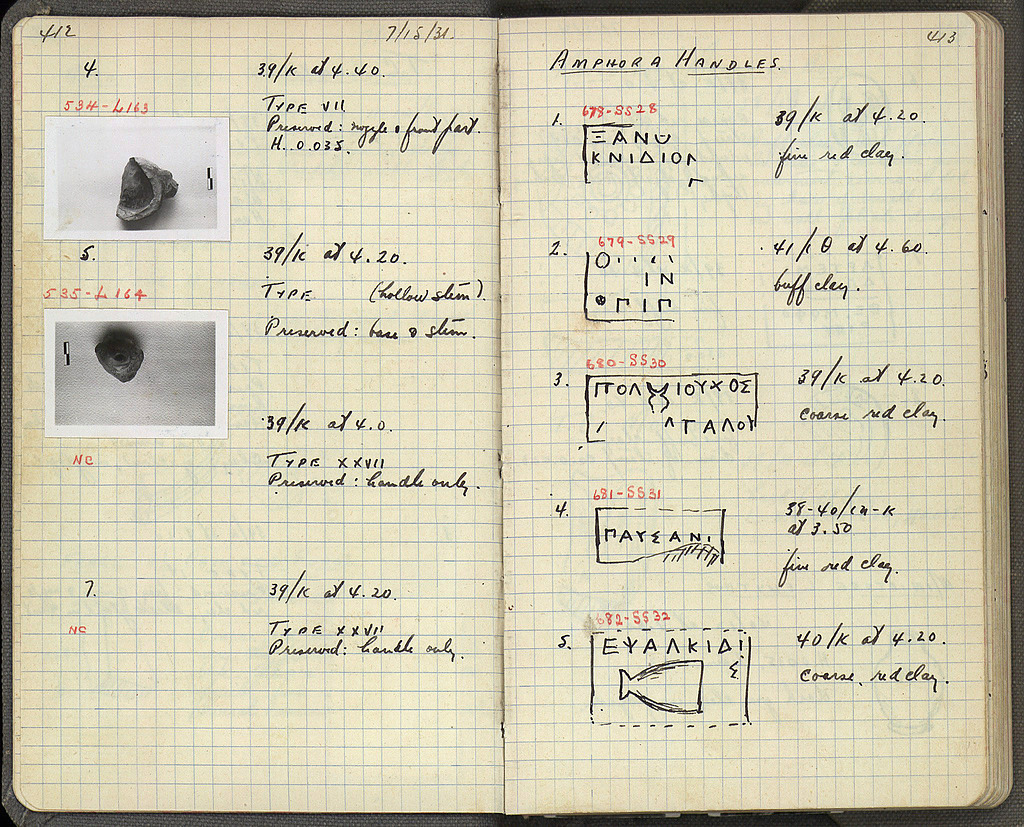 412
7/15/31.
4.
39/K at 4.40.
534-L163
TYPE VII
Preserved: nozzle & front part.
H. 0.035.
5.
39/K at 4.20.
535-L164
TYPE (hollow stem).
Preserved: base & stem.
39/K at 4.0.
NC
TYPE XXVII
Preserved: handle only.
7.
39/K at 4.20.
NC
TYPE XXVII
Preserved: handle only.
413
AMPHORA HANDLES.
1.
678-SS28
39/K at 4.20.
ΞΑΝ
ΚΝΙΔΙΟΛ
fine red clay.
Γ
2.
679-SS29
41/ΙΘ at 4.60.
Ο
ΙΝ
buff clay.
ΠΙΠ
3.
680-SS30
39/K at 4.20.
ΠΟΛ ΙΟΥΧΟΣ
coarse red clay.
ΓΑΛΟΥ
4.
681-SS31
38-40/
at 3.50
ΠΑΥΣΑΝΙ
fine red clay.
5.
682-SS32
40/K at 4.20.
ΕΨΑΛΚΙΔΙ
Σ
coarse red clay.